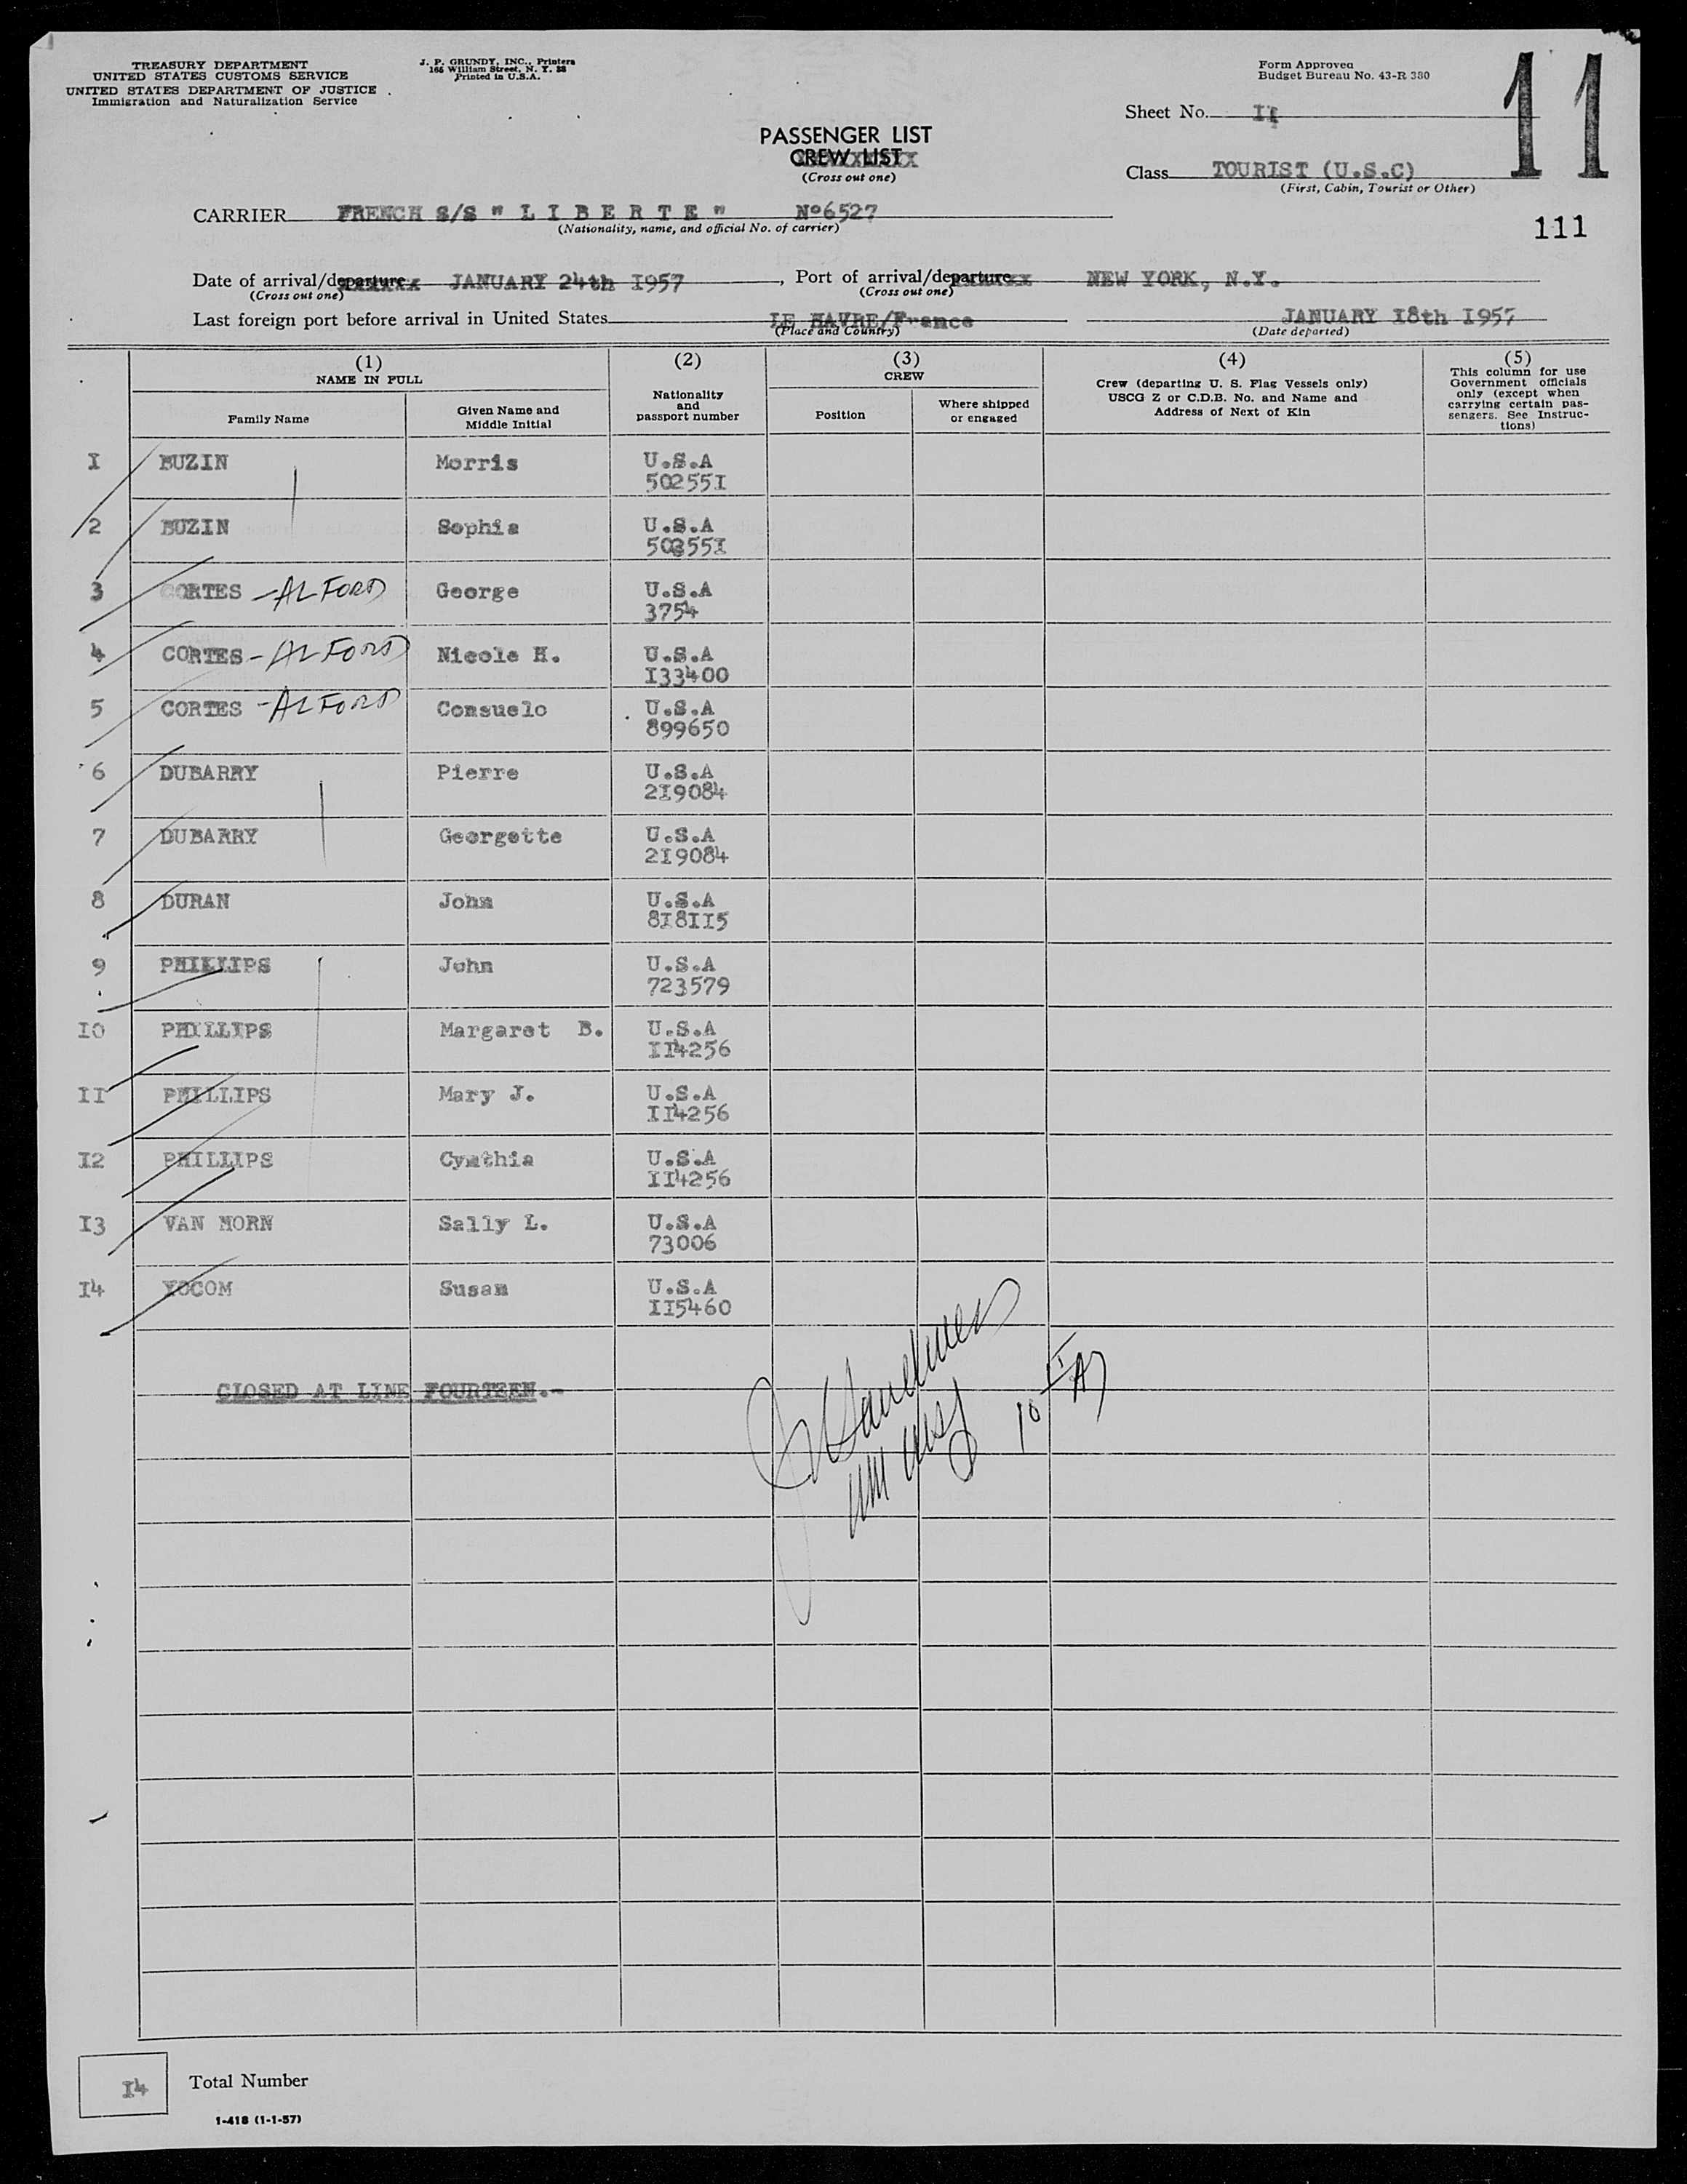 TREASURY DEPARTMENT
UNITED STATES CUSTOMS SERVICE
UNITED STATES DEPARTMENT OF JUSTICE
Immigration and Naturalization Service
J. P. GRUNDY, INC., Printers
Printed in U.S.A.
Form Approved
Budget Bureau No. 43-R 380
Sheet No.
11
PASSENGER LIST
CREW LIST
(Cross out one)
Class TOURIST (U.S.C)
(First, Cabin, Tourist or Other)
CARRIER FRENCH S/S " L I B E R T E " Nº6527
(Nationality, name, and official No. of carrier)
111
Date of arrival/departure JANUARY 24th I957, Port of arrival/departure NEW YORK, N.Y.
(Cross out one) (Cross out one)
Last foreign port before arrival in United States LE HAVRE/France JANUARY I8th I957
(Place and Country) (Date departed)
(1) (2) (3) (4) (5)
NAME IN FULL
Family Name
Given Name and
Middle Initial
Nationality
and
passport number
CREW
Position
Where shipped
or engaged
Crew (departing U. S. Flag Vessels only)
USCG Z or C.D.B. No. and Name and
Address of Next of Kin
This column for use
Government officials
only (except when
carrying certain pas-
sengers. See Instruc-
tions)
I BUZIN Morris U.S.A
502551
2 BUZIN Sophie U.S.A
3 CORTES -ALFORD George U.S.A
3754
4 CORTES -ALFORD Nicole H. U.S.A
I33400
5 CORTES -ALFORD Consuelo U.S.A
899650
6 DUBARRY Pierre U.S.A
2I9084
7 DUBARRY Georgette U.S.A
2I9084
8 DURAN John U.S.A
8I8II5
9 PHILLIPS John U.S.A
723579
I0 PHILLIPS Margaret B. U.S.A
II4256
II PHILLIPS Mary J. U.S.A
II4256
I2 PHILLIPS Cynthia U.S.A
II4256
I3 VAN HORN Sally L. U.S.A
73006
I4 YOCOM Susan U.S.A
II5460
CLOSED AT LINE FOURTEEN.-
I4 Total Number
1-418 (1-1-57)